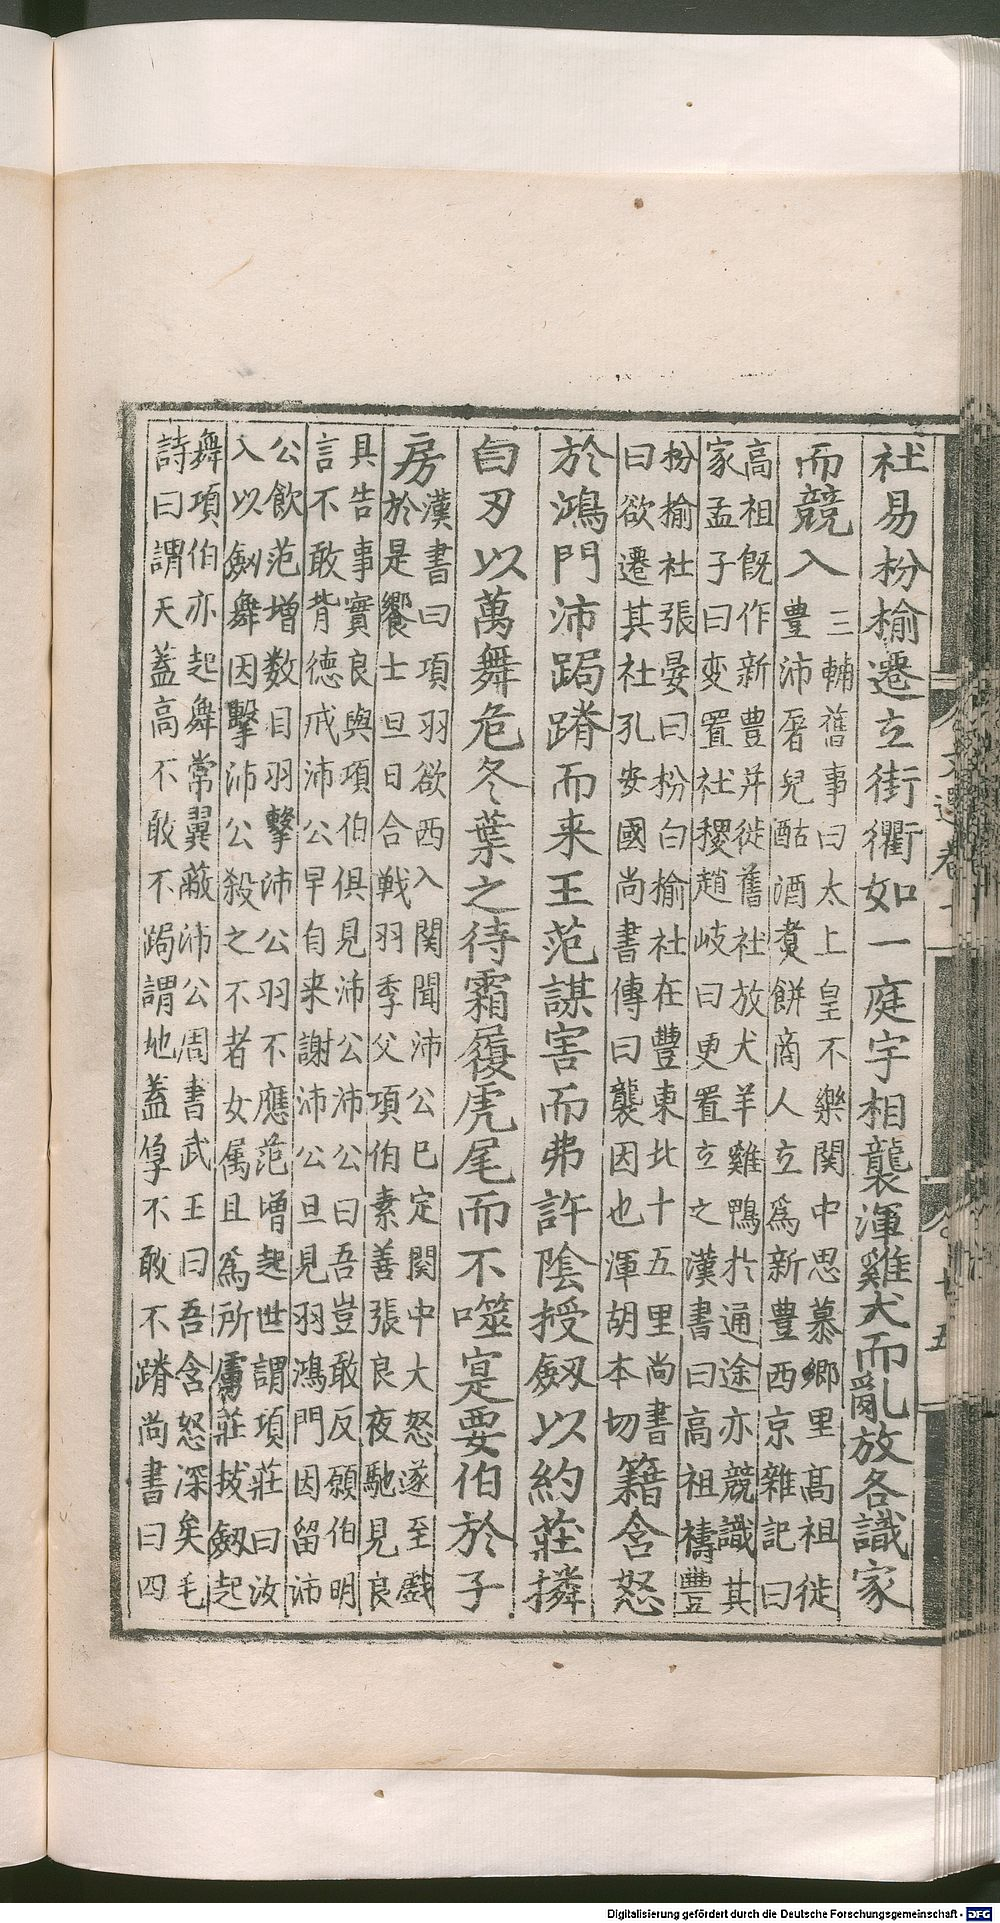 社易枌榆遷立街衢如一庭宇相襲渾雞犬而亂放各識家
而競入三輔舊事曰太上皇不樂関中思慕鄉里高祖徙
豐沛屠兒酤酒煑餅商人立爲新豐西京雜記曰
高祖旣作新豐幷徙舊社放犬羊雞鴨於通途亦競識其
家孟子曰变置社稷趙岐曰更置立之漢書曰高祖禱豐
枌榆社張晏曰枌白榆社在豐東北十五里尚書
曰欲遷其社孔安國尚書傳曰襲因也渾胡本切籍含怒
於鴻門沛跼蹐而来王范謀害而弗許陰授劔以約莊撛
白刃以萬舞危冬葉之待霜履虎尾而不噬寔要伯於子
房漢書曰項羽欲西入関聞沛公已定関中大怒遂至戲
於是饗士旦日合戰羽季父項伯素善張良夜馳見良
具告事實良與項伯俱見沛公沛公曰吾豈敢反願伯明
言不敢背德戒沛公早自来謝沛公旦見羽鴻門因留沛
公飲范增数目羽擊沛公羽不應范增起世謂項莊曰汝
入以劔舞因擊沛公殺之不者女属且爲所虜莊拔劔起
舞項伯亦起舞常翼蔽沛公周書武王曰吾含怒深矣毛
詩曰謂天蓋高不敢不跼謂地蓋厚不敢不蹐尚書曰四
文選卷十
五
Digitalisierung gefördert durch die Deutsche Forschungsgemeinschaft - DFG